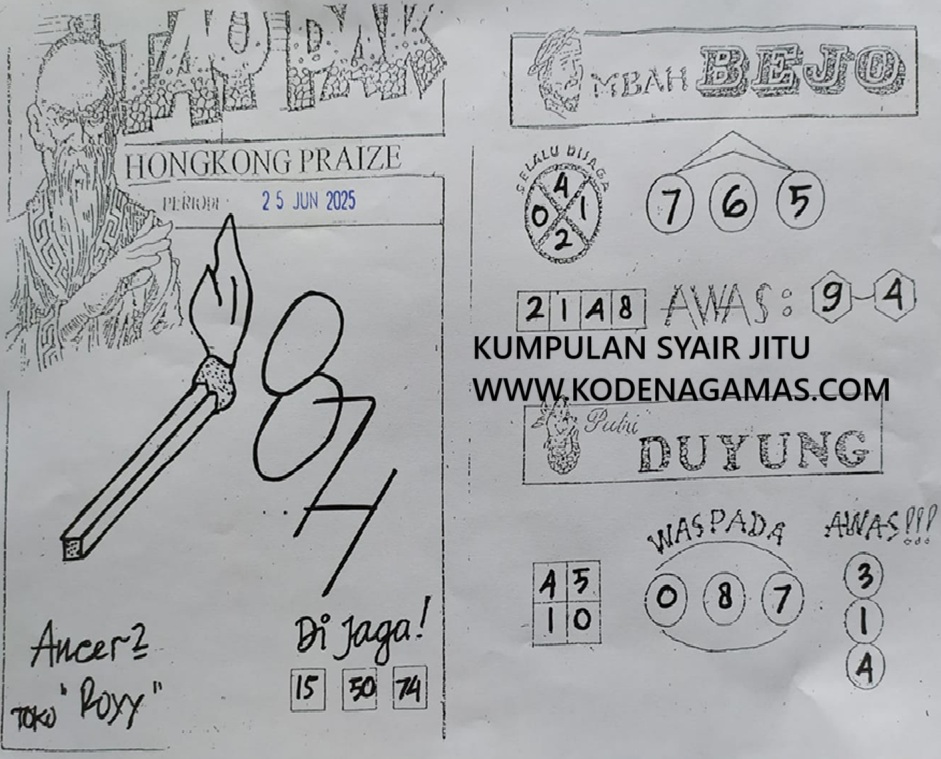 TAPPAK
HONGKONG PRAIZE
PERIODE: 25 JUN 2025
Ancer2
TOKO "Royy"
Di Jaga!
15 50 74
MBAH BEJO
SELALU DIJAGA
4
0 1
2
7 6 5
2 1 4 8
AWAS: 9-4
KUMPULAN SYAIR JITU
WWW.KODENAGAMAS.COM
Putri
DUYUNG
WASPADA
0 8 7
4 5
1 0
AWAS!!!
3
1
4